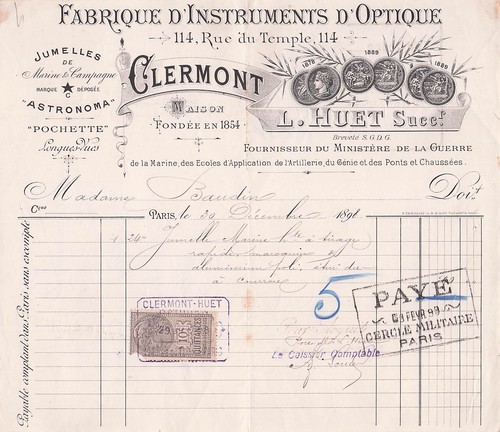 FABRIQUE D'INSTRUMENTS D'OPTIQUE
114, Rue du Temple, 114
JUMELLES
DE
Marine & Campagne
MARQUE DÉPOSÉE
C
"ASTRONOMA"
"POCHETTE"
Longues-Vues
CLERMONT
MAISON
FONDÉE EN 1854
1878
1889
1889
L. HUET Succr.
Breveté S.G.D.G.
FOURNISSEUR DU MINISTÈRE DE LA GUERRE
de la Marine, des Ecoles d'Application de l'Artillerie, du Génie et des Ponts et Chaussées.
Madame Baudin Doit
PARIS, le 29 Décembre 189
Payable comptant ou à Paris sans escompte
1 24 Jumelle Marine à tirage
rapide maroquin et
aluminium poli étui
à courroie
CLERMONT-HUET
29
10c
5
PAYÉ
FEVR 99
CERCLE MILITAIRE
PARIS
Le Caissier Comptable